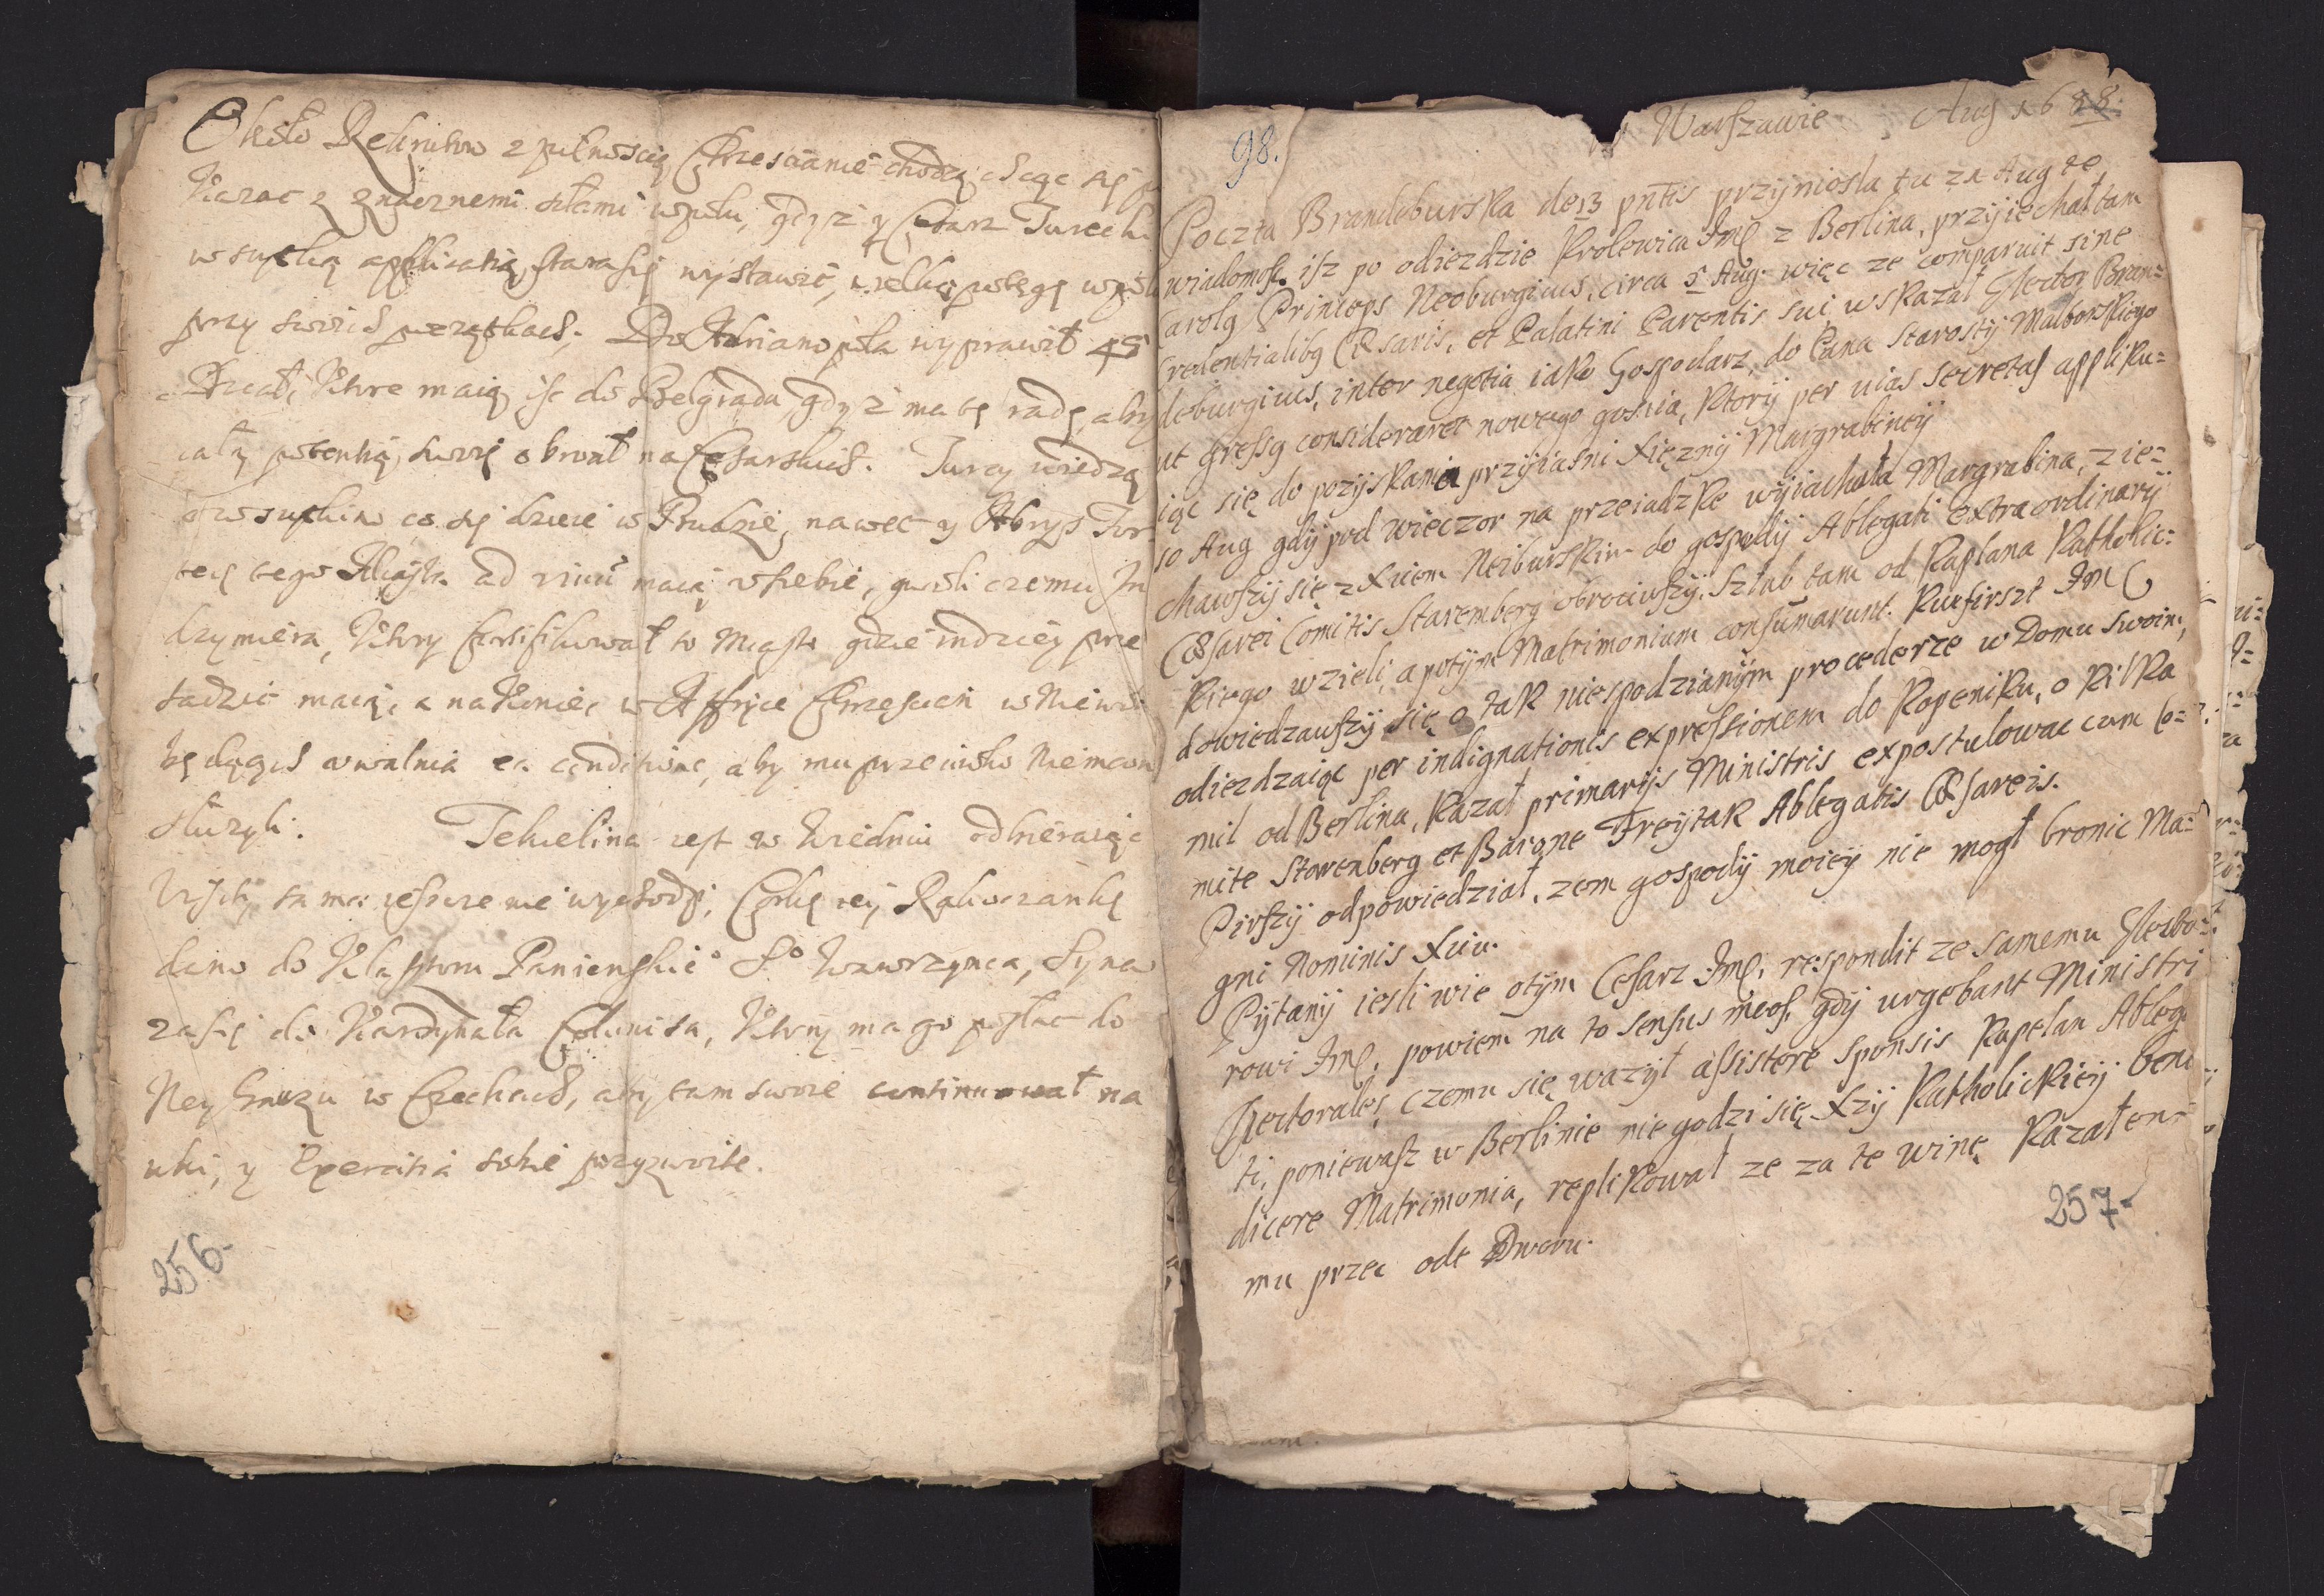 Około Rekrutów z pilnoscią Chrzescianie chodzą chcąc się
z znacznemi siłami w polu, gdyż y Cesarz Turecki
wszytką applicatią stara się wystawić, wielką potęgę
przy swoich początkach. Do Adrianopola wyprawił 45
Dział, ktore maią iść do Belgradu, gdyż ma tę radę, aby
całą potentią swoię obrocił na Cesarskich. Turcy wiedzą
o wszytkim co się dzieie w Budzie, nawet y Abrys
tego Miasta ad vivum maią u siebie,
dzymiera, ktory fortifikował to Miasto gdzie indziey
sadzić maią, a nakoniec w Affryce Chrzescian w Niewoli
będących uwalnia ea conditione, aby mu przeciwko
służyli. Tekielina iest w Wiedniu odbieraiąc
Wizyty, sama ieszcze nie wychodzi, Corkę iey Rakoczankę
dano do Klasztoru Panienskie° S° Wawrzynca, Syna
zasię do Kardynała Colonitza, ktory ma go posłac do
Ney Hauzu w Czechach, aby tam swoie continuował na
uki, y Exercitia sobie przyzwoite.
256-
98.
w Warszawie Aug 1688.
Poczta Brandeburska de 13 pntis przyniosla tu 21 Aug te
wiadomosc isz po odiezdzie Krolewica Jmc z Berlina, przyiechał tam
Carolg Princeps Neoburgicus, circa 5 Aug. więc ze comparuit sine
Credentialibg Cæsaris, et Palatini Parentis sui, wskazał Elector Bran=
deburgicus, inter negotia iako Gospodarz, do Pana Starosty Malborskiego
ut gressg consideraret nowego goscia, ktory per uias secretas appliku=
iąc się do pozyskania przyiasni Xięzny Margrabiney
10 Aug gdy pod wieczor na przeiadzke wyiachała Margrabina, zie=
chawszy się z Xciem Neiburskim do gospody Ablegati extraordinary
Cæsarei Comitis Staremberg obrociwszy. Szlub tam od Kaplana Katholic=
kiego wzieli, a potym Matrimonium consumarunt. Kurfirszt Jmc
dowiedzawszy się o tak niespodzianym procederze w Domu swoim,
odiezdzaiąc per indignationis expressionem do Kopeniku, o kilka
mil od Berlina, kazał primarijs Ministris expostulowac cum Co=
mite Starenberg et Barone Freytak Ablegatis Cæsareis.
Pirszy odpowiedział, zem gospody moiey nie mogł bronic Ma=
gni Nominis Xciu.
Pytany iesli wie o tym Cesarz Jmc, respondit ze samemu Electo=
rowi Jmc, powiem na to sensus meos, gdy urgebant Ministri
Electorales, czemu się wazył assistere sponsis Kapelan Ablega
ti, poniewasz w Berlinie nie godzi się Xzy Katholickiey bene
dicere Matrimonia, replikował ze za te winę kazałem
mu przec odt Dworu.
257-